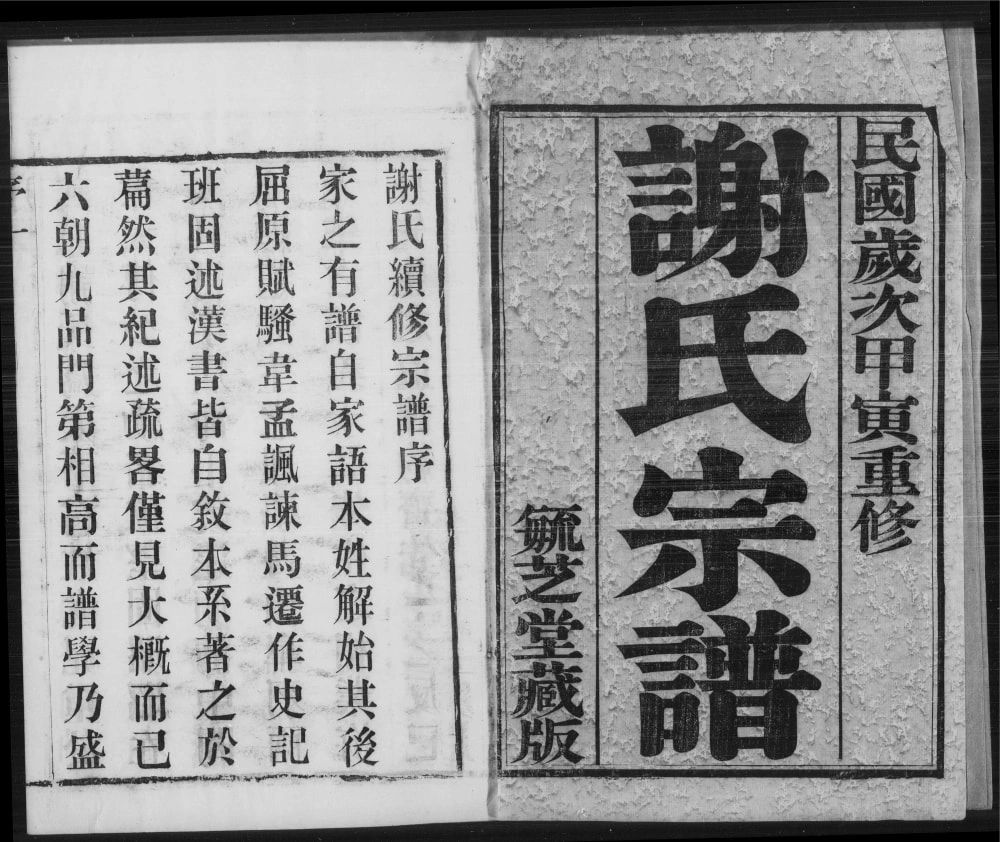 民國歲次甲寅重修
謝氏宗譜
毓芝堂藏版
謝氏續修宗譜序
家之有譜自家語本姓解始其後
屈原賦騷韋孟諷諫馬遷作史記
班固述漢書皆自敘本系著之於
篇然其紀述疏畧僅見大概而已
六朝九品門第相高而譜學乃盛
序一